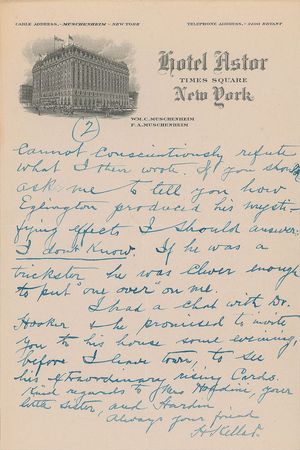 CABLE ADDRESS,-MUSCHENHEIM-NEW YORK
TELEPHONE ADDRESS,-2100 BRYANT
Hotel Astor
TIMES SQUARE
New York
WM.C.MUSCHENHEIM
F.A.MUSCHENHEIM
(2)
cannot conscientiously refute
what I then wrote. If you should
ask me to tell you how
Eglington produced his mysti-
fying effects I should answer:
I don't know. If he was a
trickster he was clever enough
to put "one over" on me.
I had a chat with Dr.
Hooker & he promised to invite
you to his house some evening,
before I leave town, to see
his extraordinary rising cards.
Kind regards to Mrs Houdini, your
little sister, and Hardin
Always your friend
H Kellar.